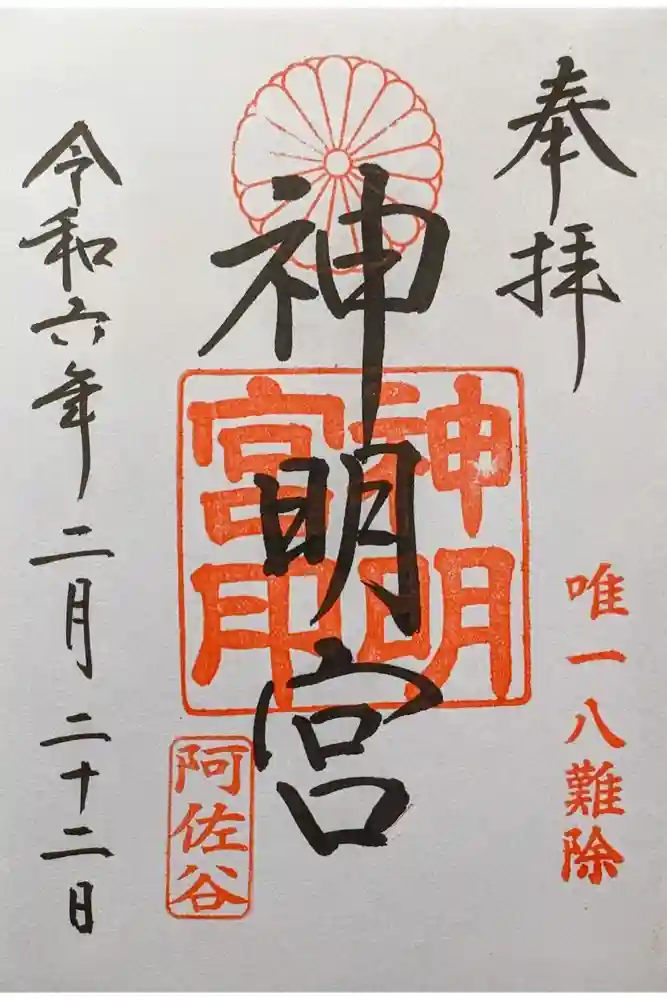 奉拝
唯一八難除
神明宮
神明
宮印
阿佐谷
令和六年二月二十二日